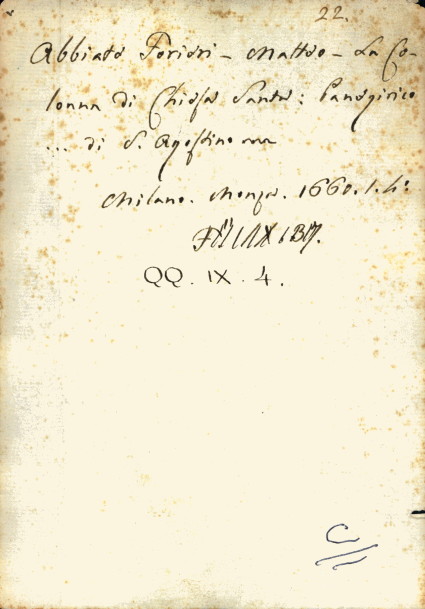 22.
Abbiate Forieri - Matteo - La Co-
lonna di Chiesa Santa: Panegirico
... di S. Agostino
Milano. Monza. 1660. 1. 4:
QQ. IX. 4.